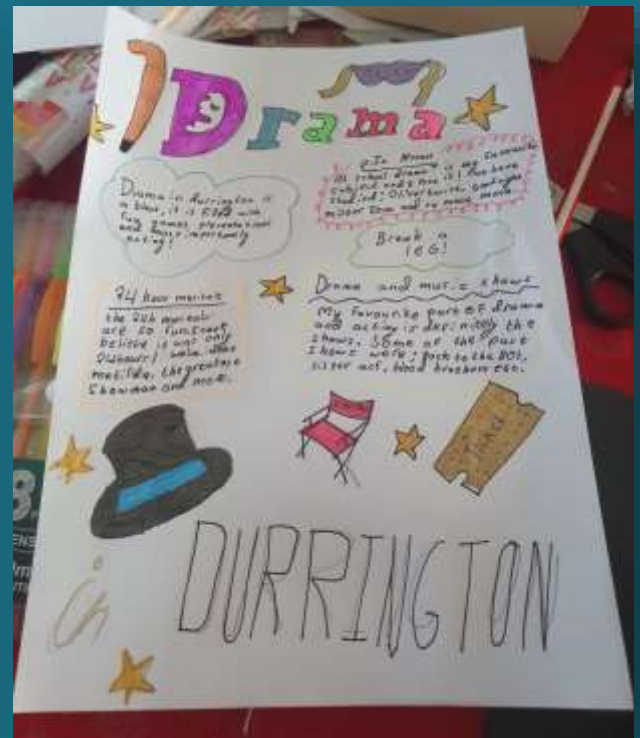 Drama
Drama in durrington is
a blast, it is filled with
fun games, presentations
and most importantly
acting!
At school drama is my favourite
subject and a time is I I've have
studied: Oliver twist, bandages
mister Tom and so much more
Break a
leG!
24 hour musicals
the 24h musicals
are so fun, I can't
believe it was only
24hours! we've done
matilda, the greatest
Showman and more.
Drama and music shows
My favourite part of drama
and acting is definitely the
shows, Some of the past
shows were; Back to the 80s,
sister act, blood brothers etc.
TICKET
in
DURRINGTON